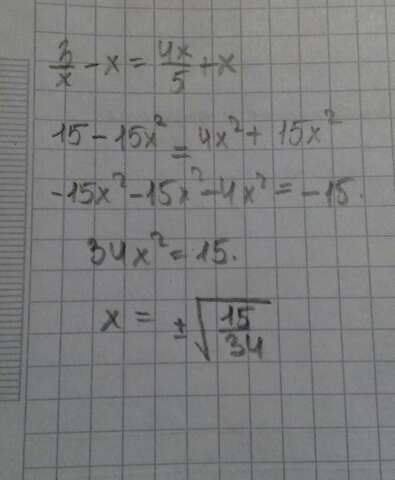 3/x - x = 4x/5 + x
15 - 15x² = 4x² + 15x²
-15x² - 15x² - 4x² = -15.
34x² = 15.
x = ±√(15/34)